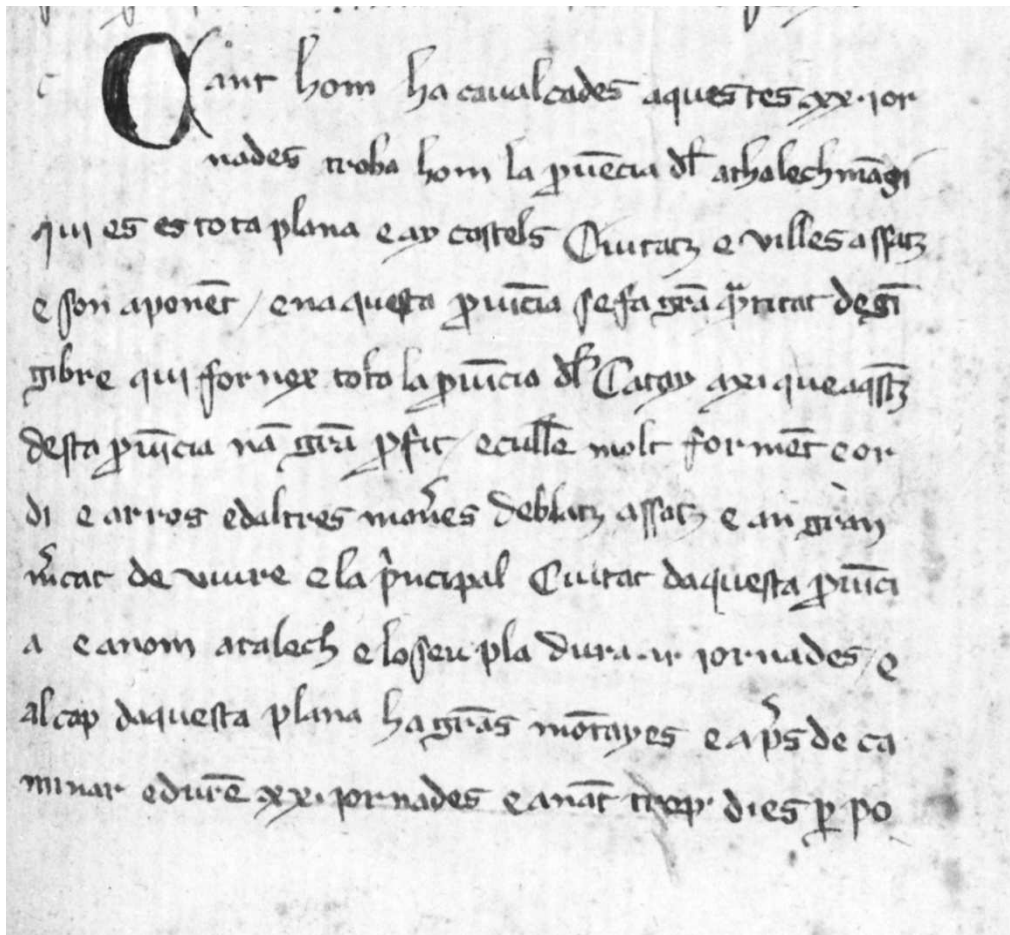 Cant hom ha caualcades aquestes .xx. ior
nades troba hom la ꝓuēcia dl̃ athalechmāgi
qui es es tota plana e ay castels Ciutatz e villes assatz
e son aponēt / enaquesta ꝓuīcia se fa grā q̃titat de gī
gibre qui fornex tota la ꝓuīcia dl̃ Catay axi que aq̃stz
desta ꝓuīcia nā grā ꝓfit / ecullē molt forment e or
di e arros edaltres man̄es deblatz assatz e an gran
m̄cat de viure e la p̃ncipal Ciutat daquesta ꝓuīci
a e anom acalech e lo seu pla dura .ii. iornades / e
al cap daquesta plana ha grās mōtayes e ap̃s de ca
minar e durē xx. iornades e anāt trop dies ꝑ po